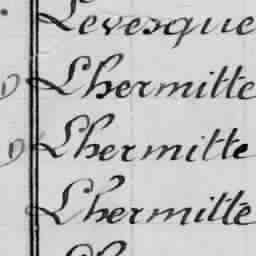 Levesque
Lhermitte
Lhermitte
Lhermitte